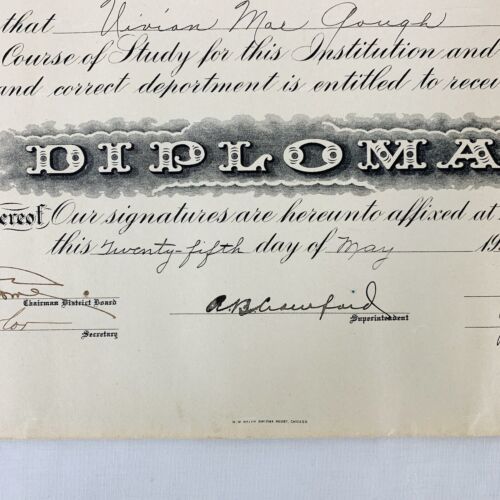 that Vivian Mae Gough
Course of Study for this Institution and
and correct deportment is entitled to recei
DIPLOMA
ereof Our signatures are hereunto affixed at
this Twenty-fifth day of May 19
Chairman District Board
A B Crawford
Superintendent
Secretary
CHICAGO